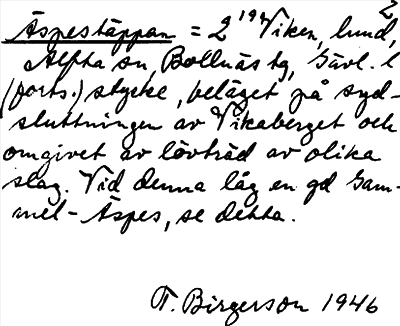 2
Äspestäppan = 2¹⁹⁴ Viken, lund,
Alfta sn, Bollnäs tg, Gävl. l
(forts.) stycke, beläget på syd-
sluttningen av Vikaberget och
omgivet av lövträd av olika
slag. Vid denna låg en gd Gam-
mel-Äspes, se detta.
T. Birgerson 1946